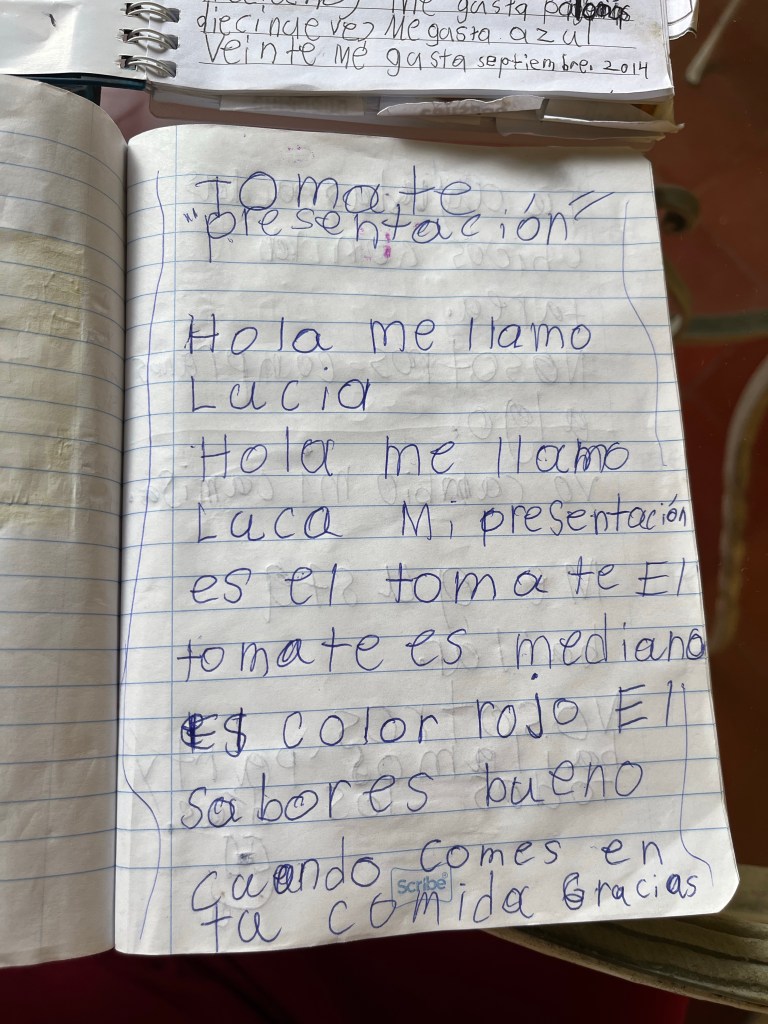 me gusta
diecinueve, Me gusta azul
Veinte Me gusta septiembre. 2014
Tomate
"presentación"
Hola me llamo
Lucia
Hola me llamo
Luca Mi presentación
es el tomate El
tomate es mediano
Es color rojo El
sabor es bueno
Cuando comes en
tu comida Gracias
Scribe